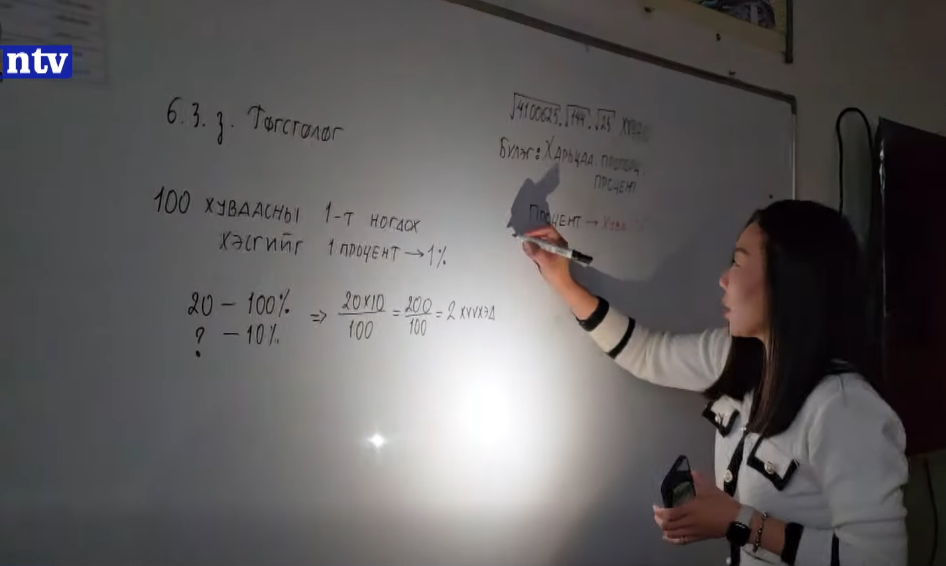 ntv
6.3.з. Тогтолог
100 ХУВААСНЫ 1-Т НОГДОХ
ХЭСГИЙГ 1 ПРОЦЕНТ → 1%
20 – 100%
? – 10%
⇒ 20×10/100 = 200/100 = 2 ХҮҮХЭД
√4100625. √144. √25
Бүлэг: ХАРЬЦАА. ПРОПОРЦ.
ПРОЦЕНТ
ПРОЦЕНТ →